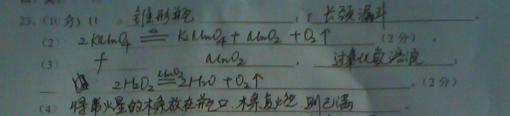 23. (10分) (1 . 锥形瓶 , 长颈漏斗
(2) 2KMnO₄ ≜ K₂MnO₄ + MnO₂ + O₂↑ (2分)
(3) f MnO₂ . 过氧化氢溶液 ,
2H₂O₂ MnO₂ 2H₂O + O₂↑ . (2分)
(4) 将带火星的木条放在瓶口, 木条复燃, 则已满